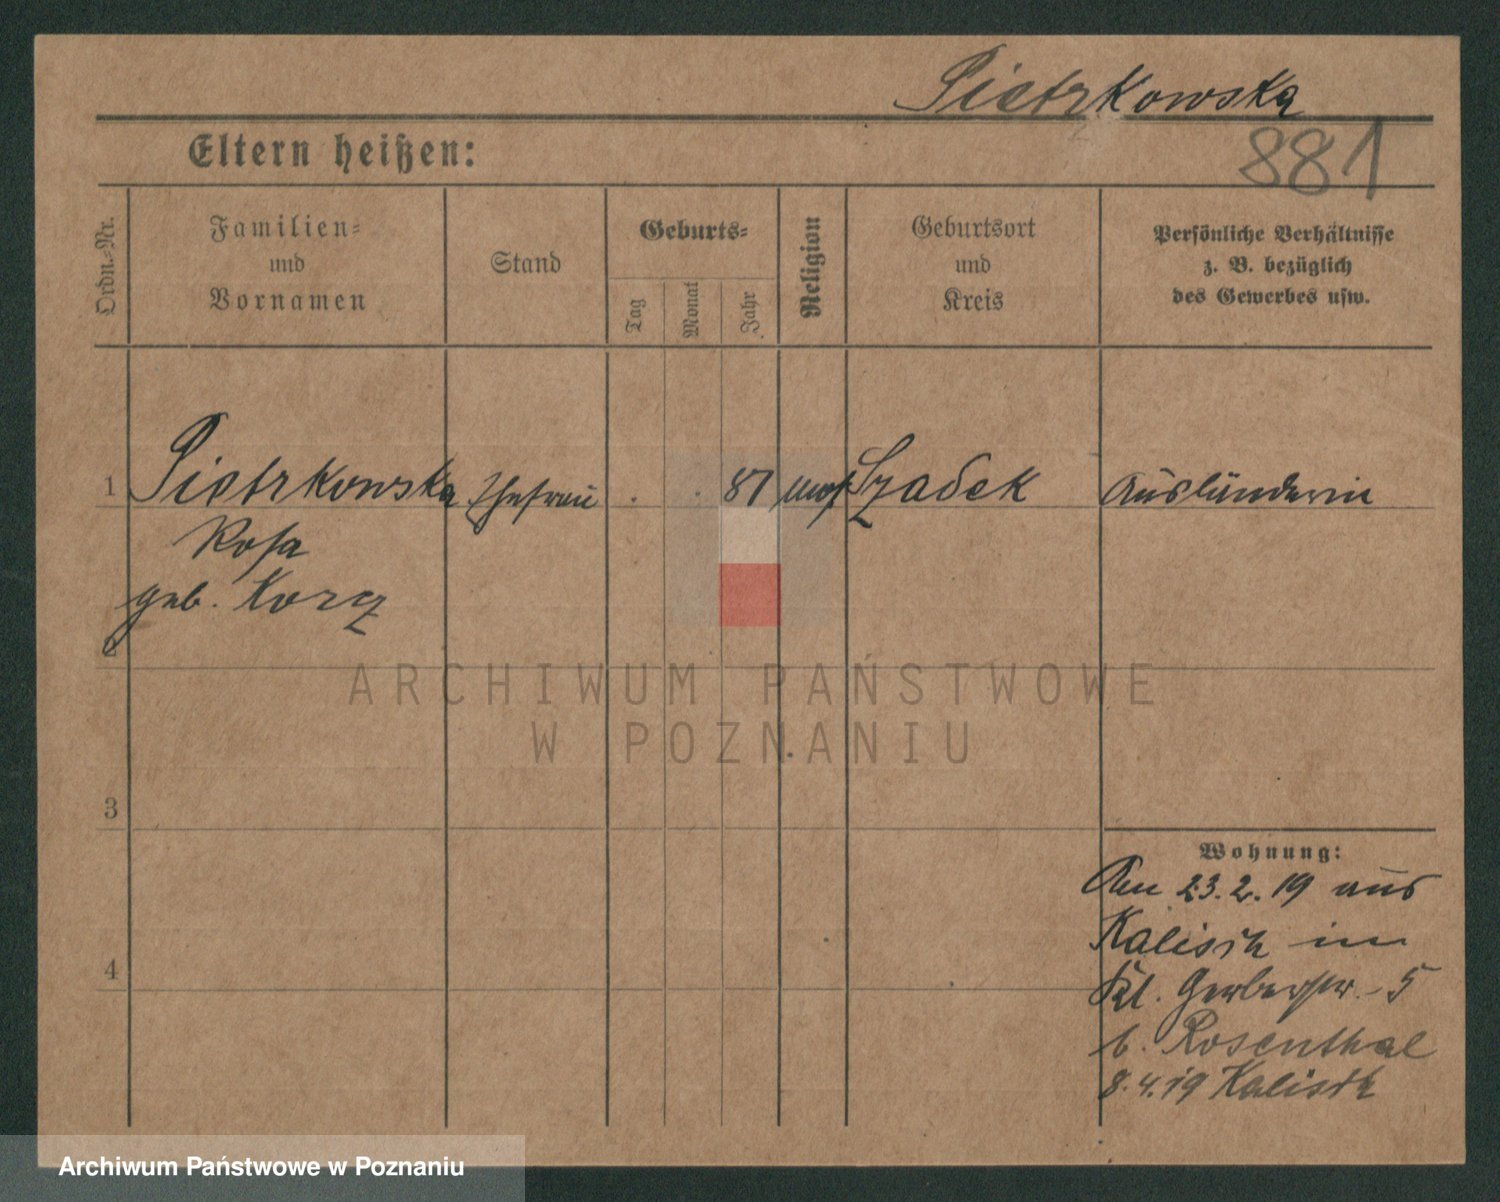 Pietrkowska
881
Eltern heißen:
Ordn.-Nr.
Familien-
und
Vornamen
Stand
Geburts-
Tag
Monat
Jahr
Religion
Geburtsort
und
Kreis
Persönliche Verhältnisse
z. B. bezüglich
des Gewerbes usw.
1 Pietrkowska Ehefrau . . 87 mos Szadek Ausländerin
Rosa
geb.
2
ARCHIWUM PAŃSTWOWE
W POZNANIU
3
Wohnung:
Am 23.2.19 aus
Kalisch in
4
Kl. Gerberstr. 5
b. Rosenthal
8.4.19 Kalisch
Archiwum Państwowe w Poznaniu